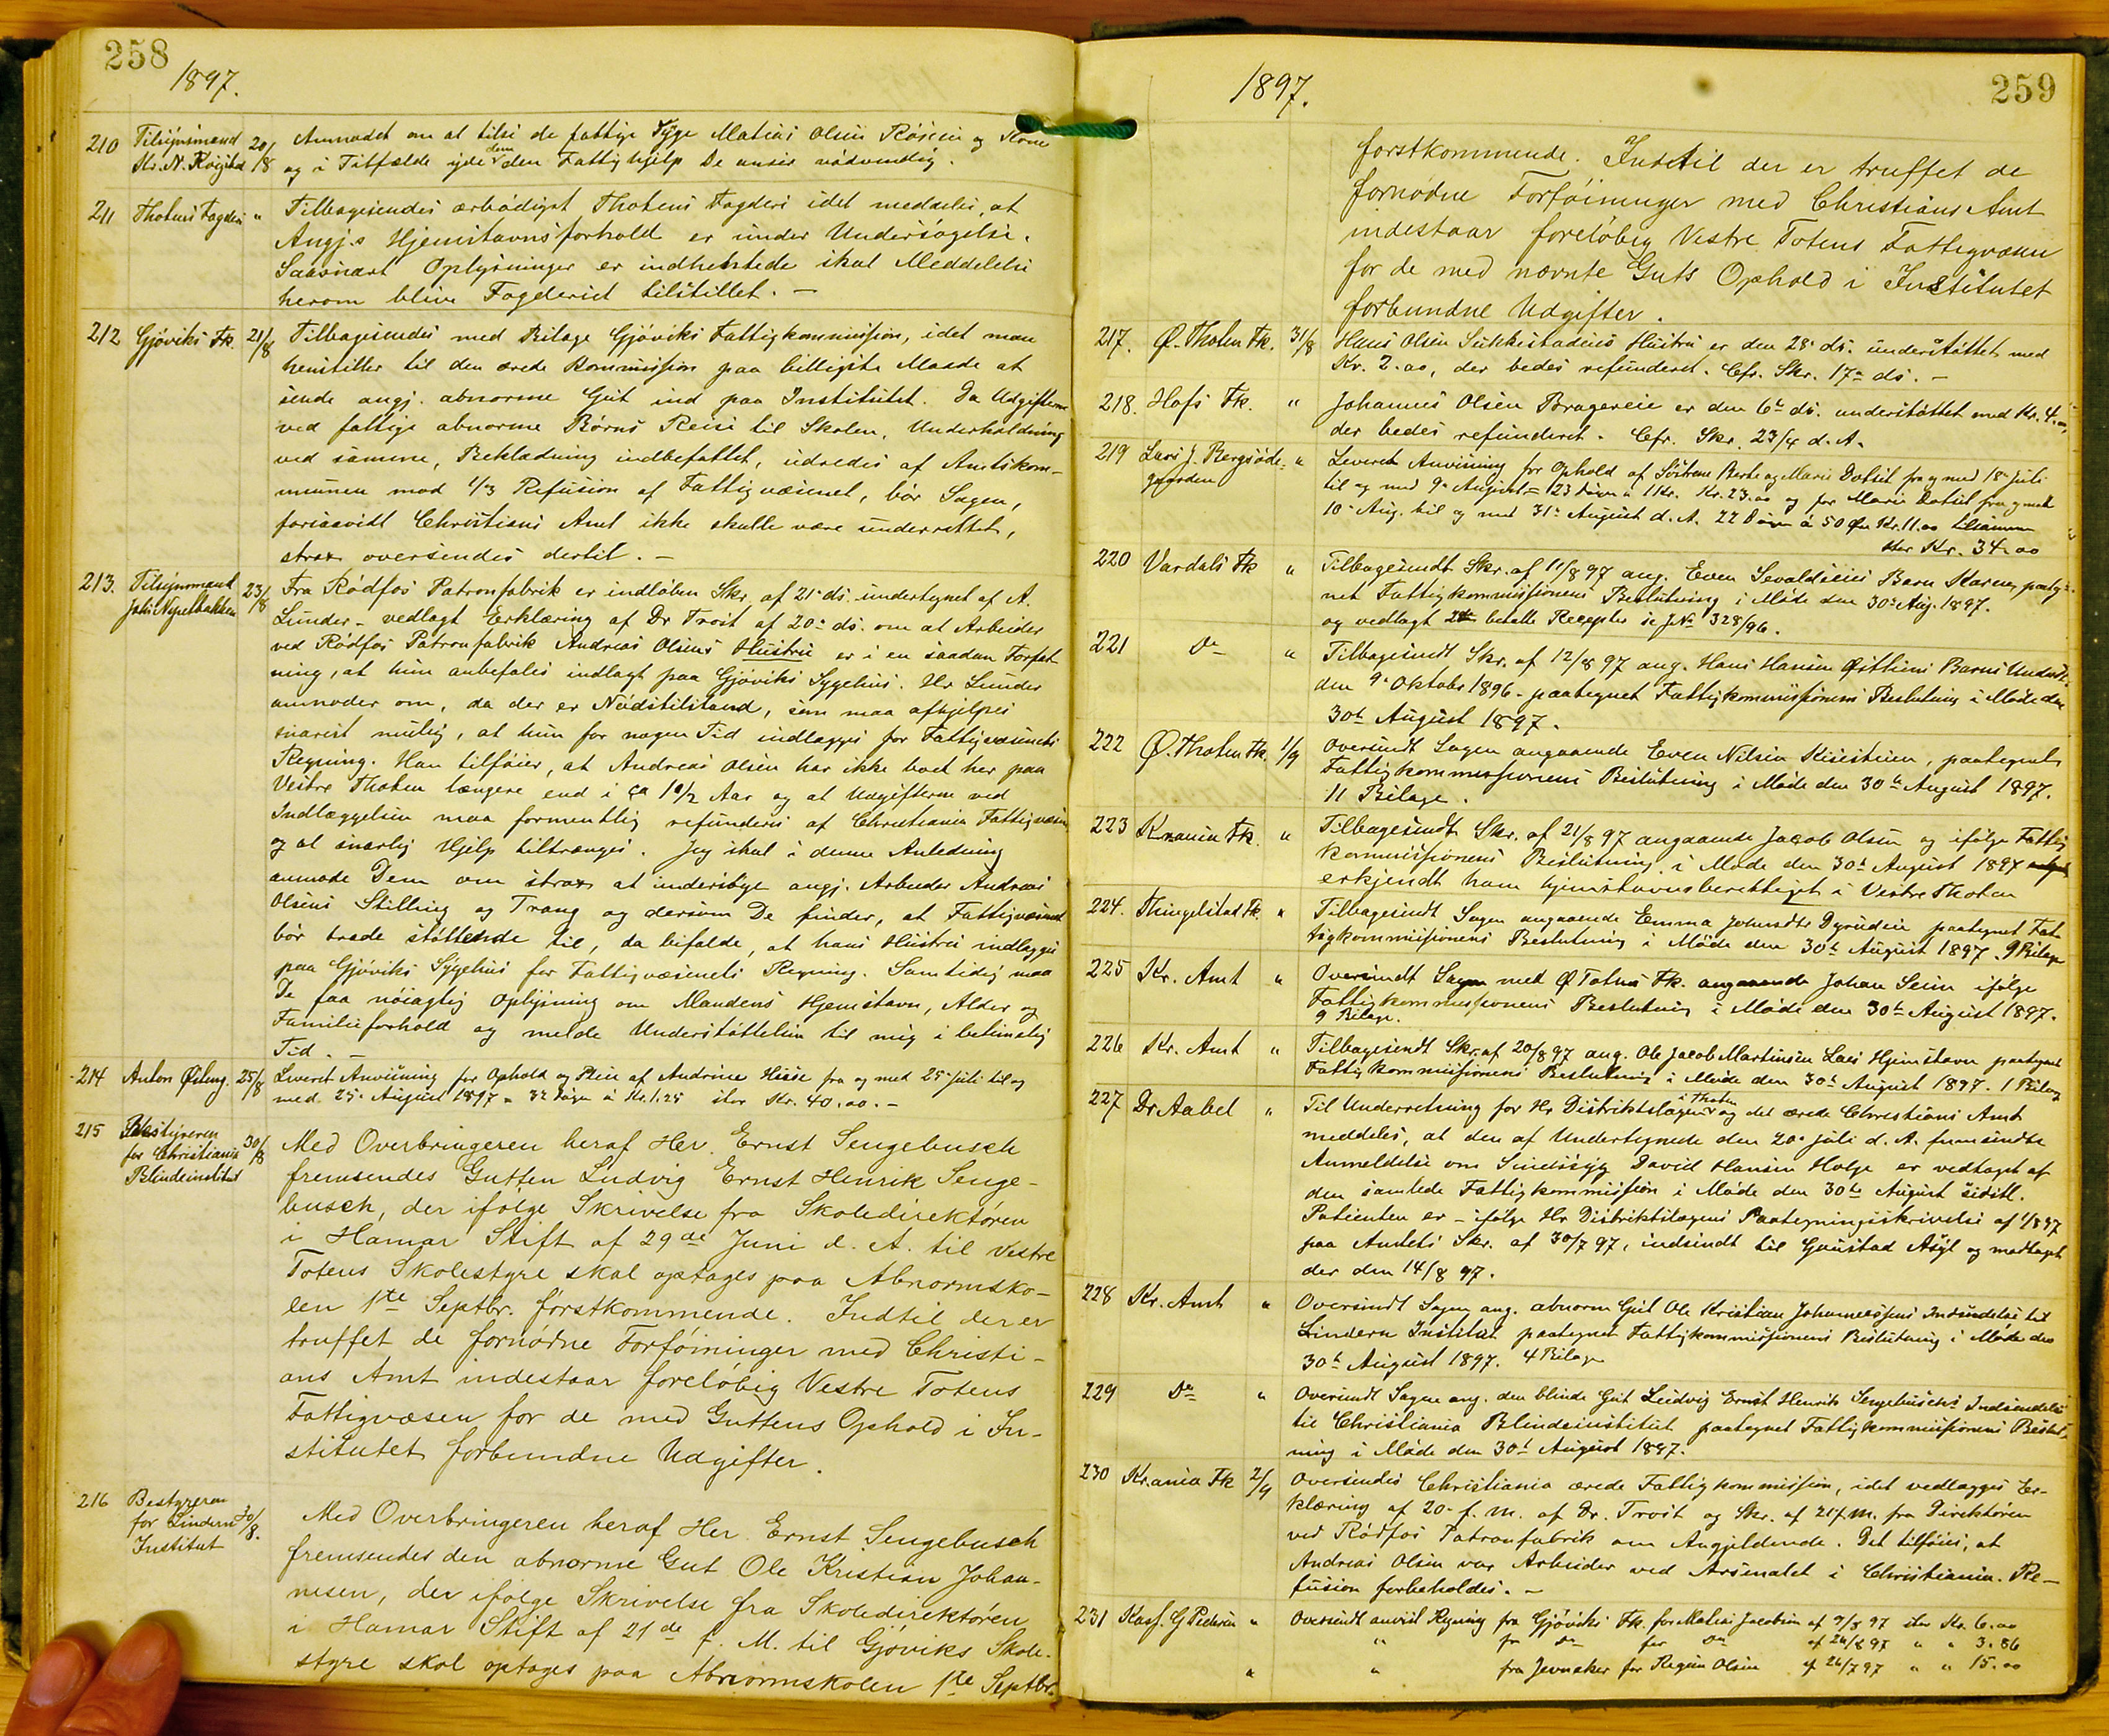 258
1897.
210 Tilsynsmand 20/8 Anmodet om at tilse de fattige Syge Matias Olsen Røisen og Kone
Kr. N. og i Tilfælde yde dem den Fattighjelp De anser nødvendig.
211 Thotens Fogderi " Tilbagesendes ærbødigst Thotens Fogderi idet meddeles, at
Angj.s Hjemstavnsforhold er under Undersøgelse.
Saasnart Oplysninger er indhentede skal Meddelelse
herom blive Fogderiet tilstillet. —
212 Gjøviks Fk. 21/8 Tilbagesendes med Bilage Gjøviks Fattigkommission, idet man
henstiller til den ærede Kommission paa billigste Maade at
sende angj. abnorme Gut ind paa Institutet. Da Udgifterne
ved fattige abnorme Børns Reise til Skolen, Underholdning
ved samme, Beklædning indbefattet, udredes af Amtskom-
munen mod 1/3 Refusion af Fattigvæsenet, bør Sagen,
forsaavidt Christians Amt ikke skulle være underrettet,
strax oversendes dertil. —
213. Tilsynsmand 23/8 Fra Rødfos Patronfabrik er indløben Skr. af 21. ds. undertegnet af A.
Johs Nygelbakken Lunder - vedlagt Erklæring af Dr Troit af 20. ds. om at Arbeider
ved Rødfos Patronfabrik Andreas Olsens Hustru er i en saadan Forfat-
ning, at hun anbefales indlagt paa Gjøviks Sygehus. Hr Lunder
anmoder om, da der er Nødstilstand, som maa afhjelpes
snarest mulig, at hun for nogen Tid indlægges for Fattigvæsenets
Regning. Han tilføier, at Andreas Olsen har ikke boet her paa
Vestre Thoten længere end i ca 1 1/2 Aar og at Udgifterne ved
Indlæggelsen maa formentlig refunderes af Christiania Fattigvæsen
og at snarlig Hjelp tiltrænges. Jeg skal i denne Anledning
anmode Dem om strax at undersøge angj. Arbeider Andreas
Olsens Stilling og Trang og dersom De finder, at Fattigvæsenet
bør træde støttende til, da bifalde, at hans Hustru indlægges
paa Gjøviks Sygehus for Fattigvæsenets Regning. Samtidig maa
De faa nøiagtig Oplysning om Mandens Hjemstavn, Alder og
Familieforhold og melde Understøttelsen til mig i betimelig
Tid. —
214 Anton Østeng. 25/8 Leveret Anvisning for Ophold og Pleie af Andrine Hisse fra og med 25 Juli til og
med 25. August 1897 = 32 Døgn à Kr. 1.25 stor Kr. 40.00. —
215 Bestyreren 30/8 Med Overbringeren heraf Her. Ernst Sengebusch
for Christiania fremsendes Gutten Ludvig Ernst Henrik Senge-
Blindeinstitut busch, der ifølge Skrivelse fra Skoledirektøren
i Hamar Stift af 29de Juni d. A. til Vestre
Totens Skolestyre skal optages paa Abnormsko-
len 1ste Septbr. førstkommende. Indtil der er
truffet de fornødne Forføininger med Christi-
ans Amt indestaar foreløbig Vestre Totens
Fattigvæsen for de med Guttens Ophold i In-
stitutet forbundne Udgifter.
216 Bestyreren 30/8. Med Overbringeren heraf Her. Ernst Sengebusch
for Lindern fremsendes den abnorme Gut Ole Kristian Johan-
Institut nesen, der ifølge Skrivelse fra Skoledirektøren
i Hamar Stift af 21de f. M. til Gjøviks Skole-
styre skal optages paa Abnormskolen 1ste Septbr.
1897.
259
førstkommende. Indtil der er truffet de
fornødne Forføininger med Christians Amt
indestaar foreløbig Vestre Totens Fattigvæsen
for de med nævnte Guts Ophold i Institutet
forbundne Udgifter.
217. Ø. Thoten Fk. 31/8 Hans Olsen Sukkestadeies Hustru er den 28. ds. understøttet med
Kr. 2.00, der bedes refunderet. Cfr. Skr. 17. ds. —
218. Hofs Fk. " Johannes Olsen Brageneie er den 6te ds. understøttet med Kr. 4.00,
der bedes refunderet. Cfr. Skr. 23/4 d. A.
219 Lars J. Bergsøde- " Leveret Anvisning for Ophold af Søstrene Berte og Marie Dotset fra og med 18. Juli
gaarden til og med 9. August = 23 Døgn à 1 Kr. Kr. 23.00 og for Marie Dotset fra og med
10. Aug. til og med 31. August d. A. 22 Døgn à 50 Øre Kr. 11.00 tilsammen
stor Kr. 34.00
220 Vardals Fk " Tilbagesendt Skr. af 11/8 97 ang. Even Sevaldseies Barn Karen, paateg-
net Fattigkommissionens Beslutning i Møde den 30. Aug. 1897.
og vedlagt betalte Recepter se J№ 328/96.
221 Do " Tilbagesendt Skr. af 12/8 97 ang. Hans Hansen Østliens Barns Underst.
den 9. Oktober 1896 - paategnet Fattigkommissionens Beslutning i Møde den
30te August 1897.
222 Ø. Thoten Fk. 1/9 Oversendt Sagen angaaende Even Nilsen Kisesteien, paategnet
Fattigkommissionens Beslutning i Møde den 30te August 1897.
11 Bilage.
223 Krania Fk. " Tilbagesendt Skr. af 21/8 97 angaaende Jacob Olsen og ifølge Fattig
kommissionens Beslutning i Møde den 30te August 1897
erkjendt ham hjemstavnsberettiget i Vestre Thoten
224. Thingelstad Fk. " Tilbagesendt Sagen angaaende Emma Johnsdtr Dyrudeie paategnet Fat-
tigkommissionens Beslutning i Møde den 30te August 1897. 9 Bilage
225 Kr. Amt " Oversendt Sagen med Ø Totens Fk. angaaende Johan Seim ifølge
Fattigkommissionens Beslutning i Møde den 30te August 1897.
9 Bilage.
226 Kr. Amt " Tilbagesendt Skr. af 20/8 97 ang. Ole Jacob Martinsen Laes Hjemstavn paategnet
Fattigkommissionens Beslutning i Møde den 30te August 1897. 1 Bilag
227 Dr Aabel " Til Underretning for Hr Distriktslægen i Thoten og det ærede Christians Amt
meddeles, at den af Undertegnede den 20. Juli d. A. fremsendte
Anmeldelse om Sindssyg David Hansen Holge er vedtaget af
den samlede Fattigkommission i Møde den 30te August sidstl.
Patienten er - ifølge Hr Distriktslægens Paategningsskrivelse af 1/8 97
paa Amtets Skr. af 30/7 97, indsendt til Gaustad Asyl og modtaget
der den 14/8 97.
228 Kr. Amt " Oversendt Sagen ang. abnorm Gut Ole Kristian Johannessens Indsendelse til
Lindern Institut paategnet Fattigkommissionens Beslutning i Møde den
30te August 1897. 4 Bilage
229 Do " Oversendt Sagen ang. den blinde Gut Ludvig Ernst Henrik Sengebusch's Indsendelse
til Christiania Blindeinstitut paategnet Fattigkommissionens Beslut-
ning i Møde den 30te August 1897.
230 Kr.ania Fk 2/9 Oversendes Christiania ærede Fattigkommission, idet vedlægges Er-
klæring af 20. f. M. af Dr. Troit og Skr. af 21 f. M. fra Direktøren
ved Rødfos Patronfabrik om Angjeldende. Det tilføies, at
Andreas Olsen var Arbeider ved Arsenalet i Christiania. Re-
fusion forbeholdes. —
231 Kasf. G Pedersen " Oversendt anvist Regning fra Gjøviks Fk. for Matias Jacobsen af 9/8 97 stor Kr. 6.00
" fr do for Do af 24/8 97 " " 3.86
" " fra Jevnaker for Regine Olsen af 26/7 97 " " 15.00